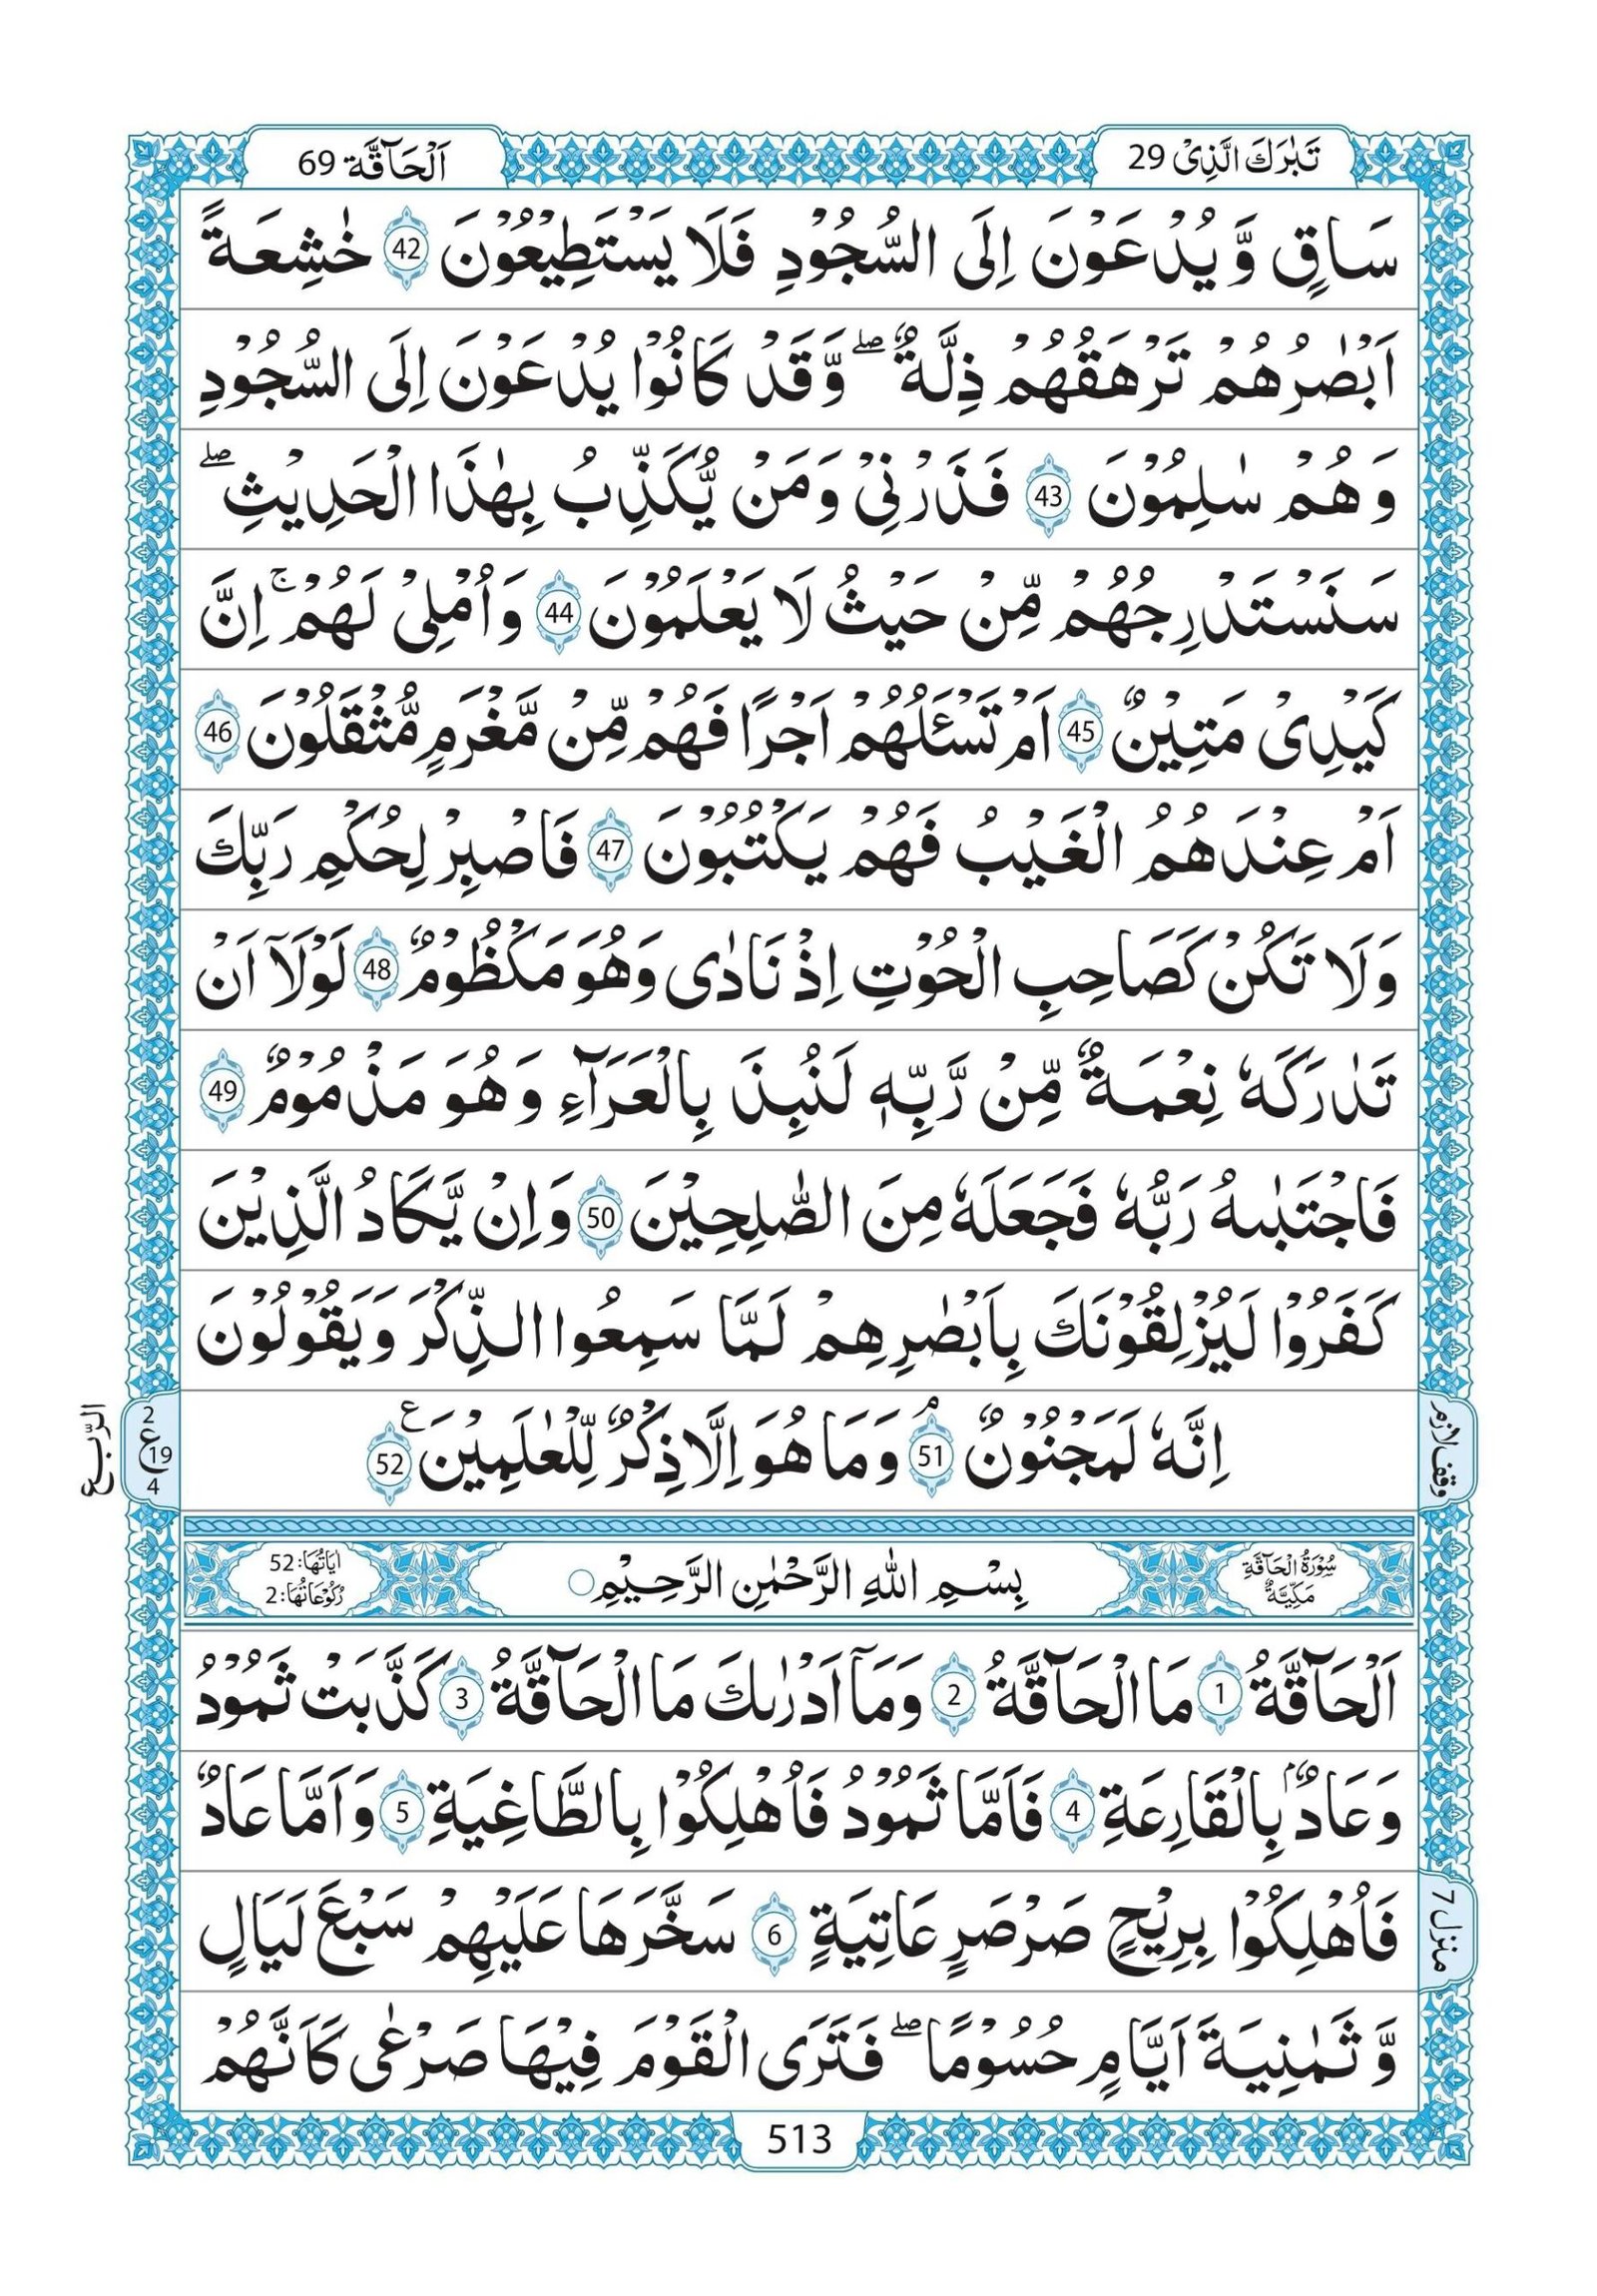 تَبٰرَكَ الَّذِیْ 29
اَلْحَآقَّة 69
سَاقٍ وَّ یُدْعَوْنَ اِلَی السُّجُوْدِ فَلَا یَسْتَطِیْعُوْنَ 42 خَٰشِعَةً
اَبْصٰرُهُمْ تَرْهَقُهُمْ ذِلَّةٌ ۖ وَّقَدْ كَانُوْا یُدْعَوْنَ اِلَی السُّجُوْدِ
وَ هُمْ سٰلِمُوْنَ 43 فَذَرْنِیْ وَمَنْ یُّكَذِّبُ بِهٰذَا الْحَدِیْثِ ۖ
سَنَسْتَدْرِجُهُمْ مِّنْ حَیْثُ لَا یَعْلَمُوْنَ 44 وَاُمْلِیْ لَهُمْ ۚ اِنَّ
كَیْدِیْ مَتِیْنٌ 45 اَمْ تَسْـَٔلُهُمْ اَجْرًا فَهُمْ مِّنْ مَّغْرَمٍ مُّثْقَلُوْنَ 46
اَمْ عِنْدَهُمُ الْغَیْبُ فَهُمْ یَكْتُبُوْنَ 47 فَاصْبِرْ لِحُكْمِ رَبِّكَ
وَلَا تَكُنْ كَصَاحِبِ الْحُوْتِ اِذْ نَادٰی وَهُوَ مَكْظُوْمٌ 48 لَوْلَآ اَنْ
تَدٰرَكَهٗ نِعْمَةٌ مِّنْ رَّبِّهٖ لَنُبِذَ بِالْعَرَآءِ وَ هُوَ مَذْمُوْمٌ 49
فَاجْتَبٰىهُ رَبُّهٗ فَجَعَلَهٗ مِنَ الصّٰلِحِیْنَ 50 وَاِنْ یَّكَادُ الَّذِیْنَ
كَفَرُوْا لَیُزْلِقُوْنَكَ بِاَبْصٰرِهِمْ لَمَّا سَمِعُوا الذِّكْرَ وَیَقُوْلُوْنَ
اِنَّهٗ لَمَجْنُوْنٌ ۘ 51 وَمَا هُوَ اِلَّا ذِكْرٌ لِّلْعٰلَمِیْنَ ع 52
وقف لازم
2
ع 19
4
الربع
سُوْرَةُ الْحَآقَّةِ
مَكِّیَّةٌ
بِسْمِ اللّٰهِ الرَّحْمٰنِ الرَّحِیْمِ
اٰیَاتُهَا: 52
رُكُوْعَاتُهَا: 2
اَلْحَآقَّةُ 1 مَا الْحَآقَّةُ 2 وَمَآ اَدْرٰىكَ مَا الْحَآقَّةُ 3 كَذَّبَتْ ثَمُوْدُ
وَعَادٌۢ بِالْقَارِعَةِ 4 فَاَمَّا ثَمُوْدُ فَاُهْلِكُوْا بِالطَّاغِیَةِ 5 وَاَمَّا عَادٌ
فَاُهْلِكُوْا بِرِیْحٍ صَرْصَرٍ عَاتِیَةٍ 6 سَخَّرَهَا عَلَیْهِمْ سَبْعَ لَیَالٍ
وَّ ثَمٰنِیَةَ اَیَّامٍ حُسُوْمًا ۖ فَتَرَی الْقَوْمَ فِیْهَا صَرْعٰی كَاَنَّهُمْ
منزل 7
513